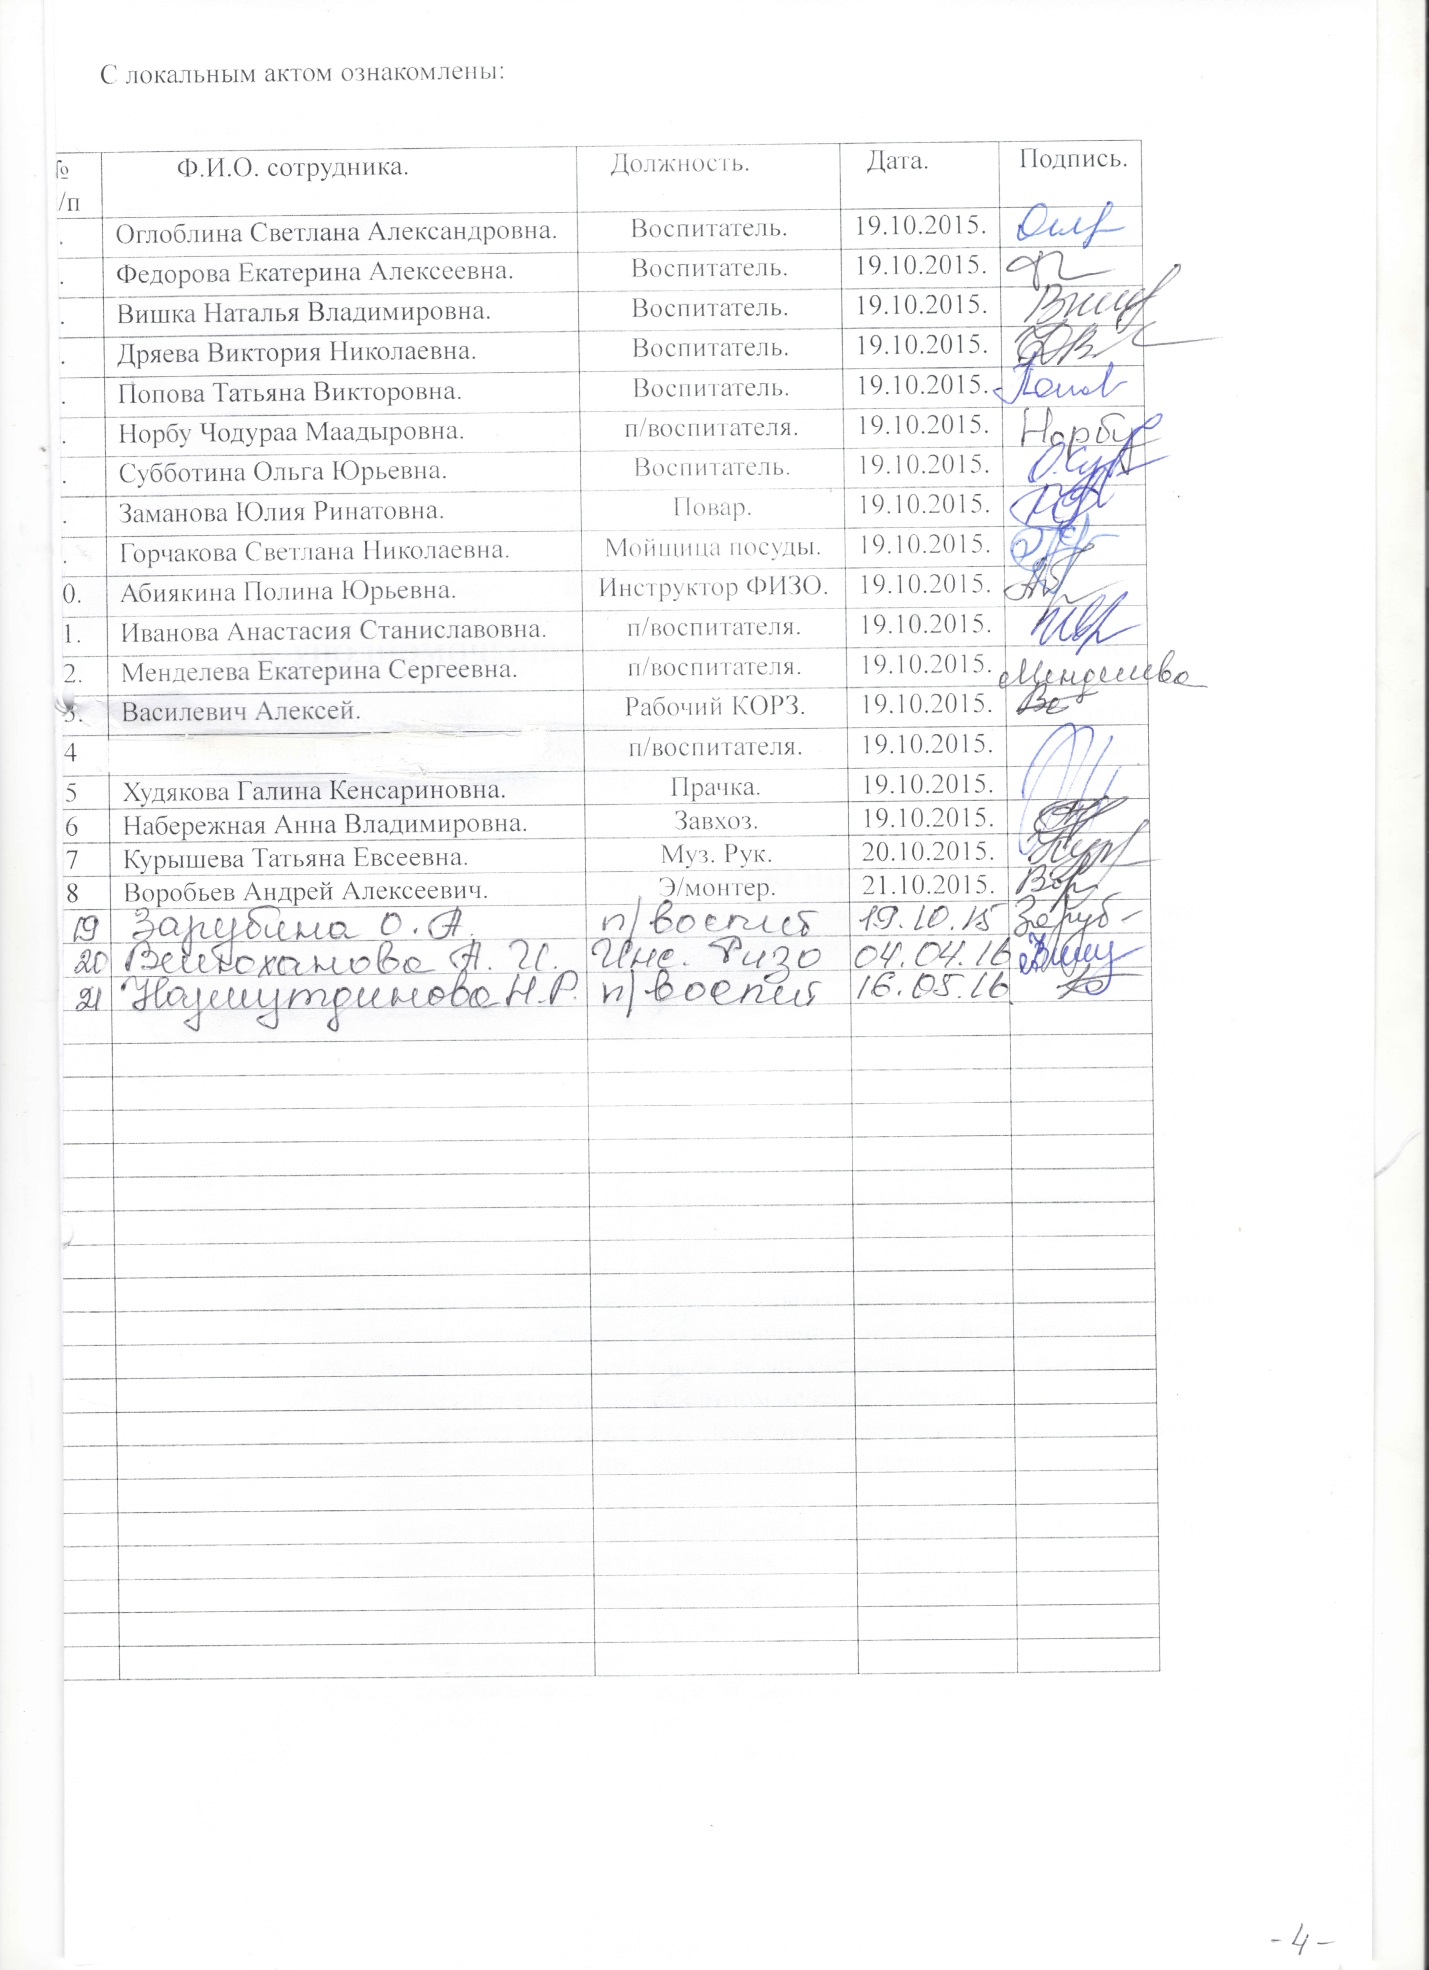 С локальным актом ознакомлены:
№ Ф.И.О. сотрудника. Должность. Дата. Подпись.
/п
. Оглоблина Светлана Александровна. Воспитатель. 19.10.2015.
. Федорова Екатерина Алексеевна. Воспитатель. 19.10.2015.
. Вишка Наталья Владимировна. Воспитатель. 19.10.2015.
. Дряева Виктория Николаевна. Воспитатель. 19.10.2015.
. Попова Татьяна Викторовна. Воспитатель. 19.10.2015.
. Норбу Чодураа Маадыровна. п/воспитателя. 19.10.2015. Норбу
. Субботина Ольга Юрьевна. Воспитатель. 19.10.2015.
. Заманова Юлия Ринатовна. Повар. 19.10.2015.
. Горчакова Светлана Николаевна. Мойщица посуды. 19.10.2015.
0. Абиякина Полина Юрьевна. Инструктор ФИЗО. 19.10.2015.
1. Иванова Анастасия Станиславовна. п/воспитателя. 19.10.2015.
2. Менделева Екатерина Сергеевна. п/воспитателя. 19.10.2015. Менделева
3. Василевич Алексей. Рабочий КОРЗ. 19.10.2015.
4 п/воспитателя. 19.10.2015.
5 Худякова Галина Кенсариновна. Прачка. 19.10.2015.
6 Набережная Анна Владимировна. Завхоз. 19.10.2015.
7 Курышева Татьяна Евсеевна. Муз. Рук. 20.10.2015.
8 Воробьев Андрей Алексеевич. Э/монтер. 21.10.2015.
19 Зарубина О.А. п/воспит 19.10.15 Заруб-
20 А.И. Инс. Физо 04.04.16
21 Назмутдинова Н.Р. п/воспит 16.05.16
-4-